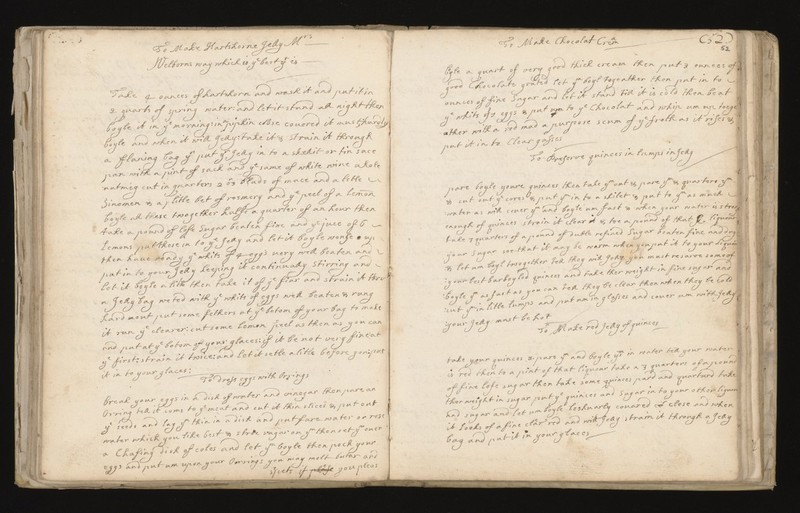 To Make Hartshorne Jelly Mrs
Welburns way which is ye best yt is
Take 4 ounces of hartshorn and wash it and put it in
2 quarts of spring water and let it stand all night then
boyle it in ye morning in a pipkin close covered it must
boyle and when it will Jelly take it & strain it through
a Jelly bag yn put ye Jely in to a skelit or tin sace
pan with a pint of sack and ye same of white wine a hole
nutmeg cut in quarters 2 or 3 blads of mace and a letle
Sinomon & a little bit of rosmery and ye peel of a Lemon
boyle all these toogether halfe a quarter of an hour then
take a pound of lofe Sugar beaten fine and ye juce of 6
Lemons put these in to ye Jely and let it boyle wonse up
then have ready ye white of eggs very well beaten and
put in to your Jely keeping it continualy stirring and
let it boyle a litle then take it of ye fier and strain it thro
a Jelly bag weted with ye white of eggs well beaten & rung
hard mout put some fethers at ye botom of your bag to make
it run ye clearer: cut some Lemon peel as thin as you can
and put at ye botom of your glaces: if it be not very fine at
ye first: strain it twice: and let it setle a litle before you put
it in to your glaces:
To dress eggs with Orings
break your eggs in a dish of water and vinegar then pare an
Oring till it come to ye meat and cut it thin slices & put out
ye seeds and lay ym thin in a dish and put fare water or rose
water which you like best & stroe sugar on ym then set ym over
a Chafing dish of coles and let ym boyle then poch your
eggs and put um upon your Orings you may melt buter and
if your pleas
To Make Chocolat Crem
52
52
Boyle a quart of very good thick cream then put 2 ounces of
good Chocolate grated let ym boyl toogather then put in to
ounces of fine Sugar and let it stand till it is cold then beat
ye white of eggs & put um to ye Chocolat and whip um up toog
ather with a rod mad a purpose scum of ye froth as it rises &
put it in to clear glasses
To Preserve quinces in lumps in Jely
pare boyle youre quinces then take ym out & pare ym & quarter ym
& cut out ye cores & put ym in to a skilet & put to ym as much
water as will cover ym and boyle um fast & when your water is strong
enough of quinces strain it clear & to a pound of that liquour
take 3 quarters of a pound of duble refined Sugar beaten fine and dry
your Sugar so that it may be warm when you put it to your liquour
& let um boyl toogether till they will Jely you must reserve some of
your best parboyled quinces and take ther weight in fine sugar and
boyle ym as fast as you can till they be clear then when they be cold
cut ym in litle lumps and put um in glasses and cover um with Jely
your Jely must be hot
To Make red Jelly of quinces
take your quinces & pare ym and boyle ym in water till your water
is red then to a pint of that liquour take a 3 quarters of a pound
of fine lofe sugar then take some quinces pard and quartard take
ther weight in sugar put ye quinces and sugar in to your other liquour
and sugar and let um boyle leshuarly covared close and when
it Looks of a fine clear red and will Jely strain it through a Jely
bag and put it in your glaces